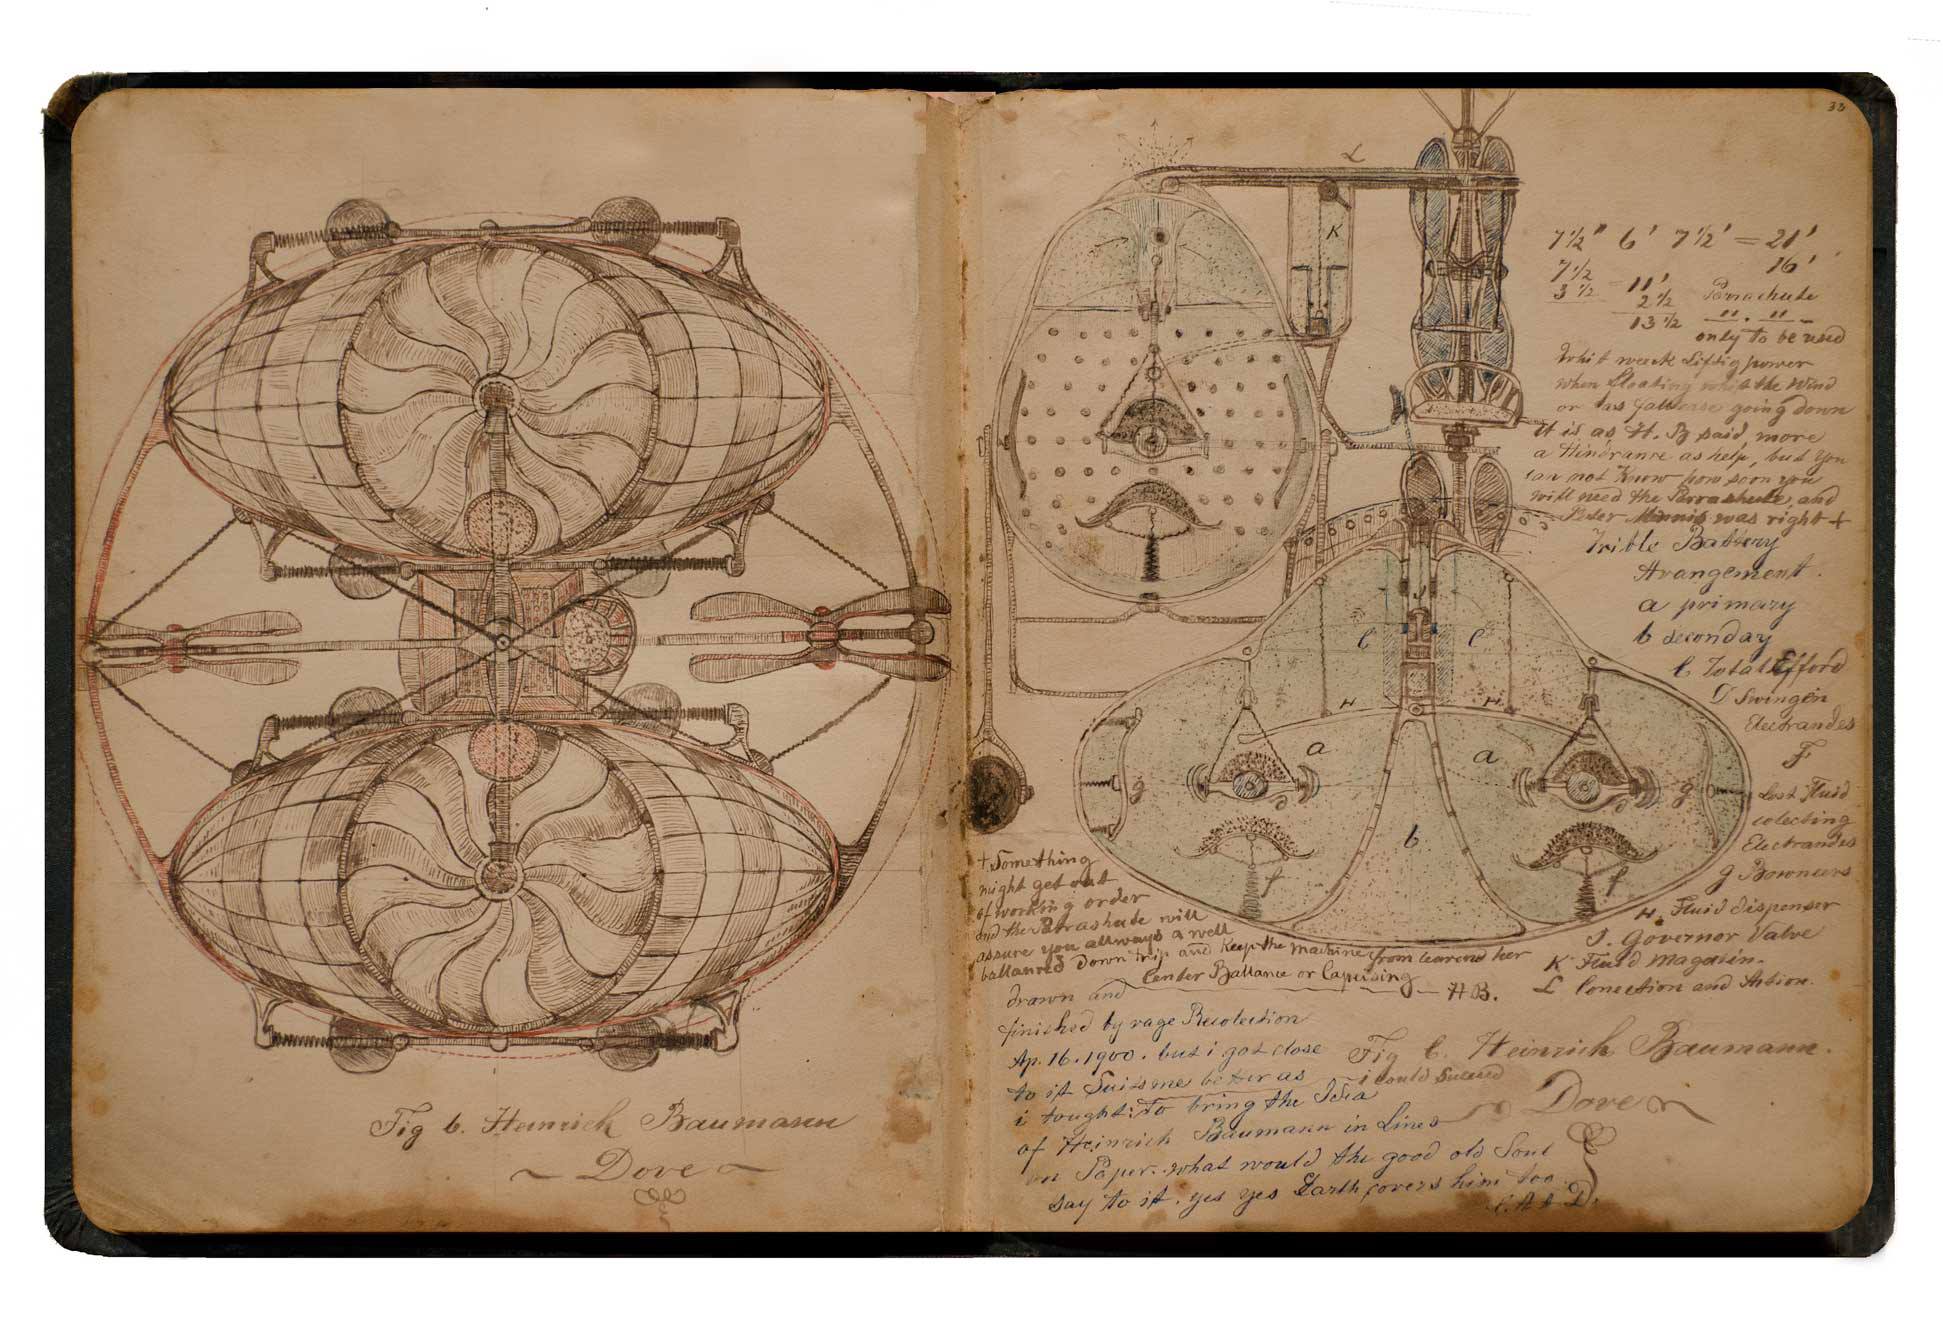 Fig b. Heinrich Baumann
~ Dove ~
33
L
K
7½" 6' 7½' = 21'
16'
7½
3½ 11'
2½ Parrachute
13½ " . " -
only to be used
Whit weack Liftig power
when floating whit the Wind
or as going down
it is as H. B said, more
a Hindranre as help, but you
can not Know how soon you
will need the Parrashute, and
Peter Mennis was right +
Trible Battery
Arangement.
a primary
b seconday
C Total Efford
D Swingen
Electrandes
F
Lost Fluid
colecting
Electrandes
g Bowneers
H. Fluid dispenser
J. Governor Valve
K Fluid Magasin.
L Conection and Action.
J
C C
H H
a a
g g
D D
b
f f
+ Something
might get out
of working order
and the Parashute will
assure you allways a well
ballanred Down trip and Keep the machine from her
Center Ballance or Capsising — H B.
drawn and
finished by rage Recolection
Ap. 16. 1900. but i got close
to it Suits me better as i could succed
i tought: To bring the Idea
of Heinrich Baumann in Lines
on Paper. what would the good old Soul
say to it. yes yes Earth covers him too.
Fig C. Heinrich Baumann.
~ Dove ~